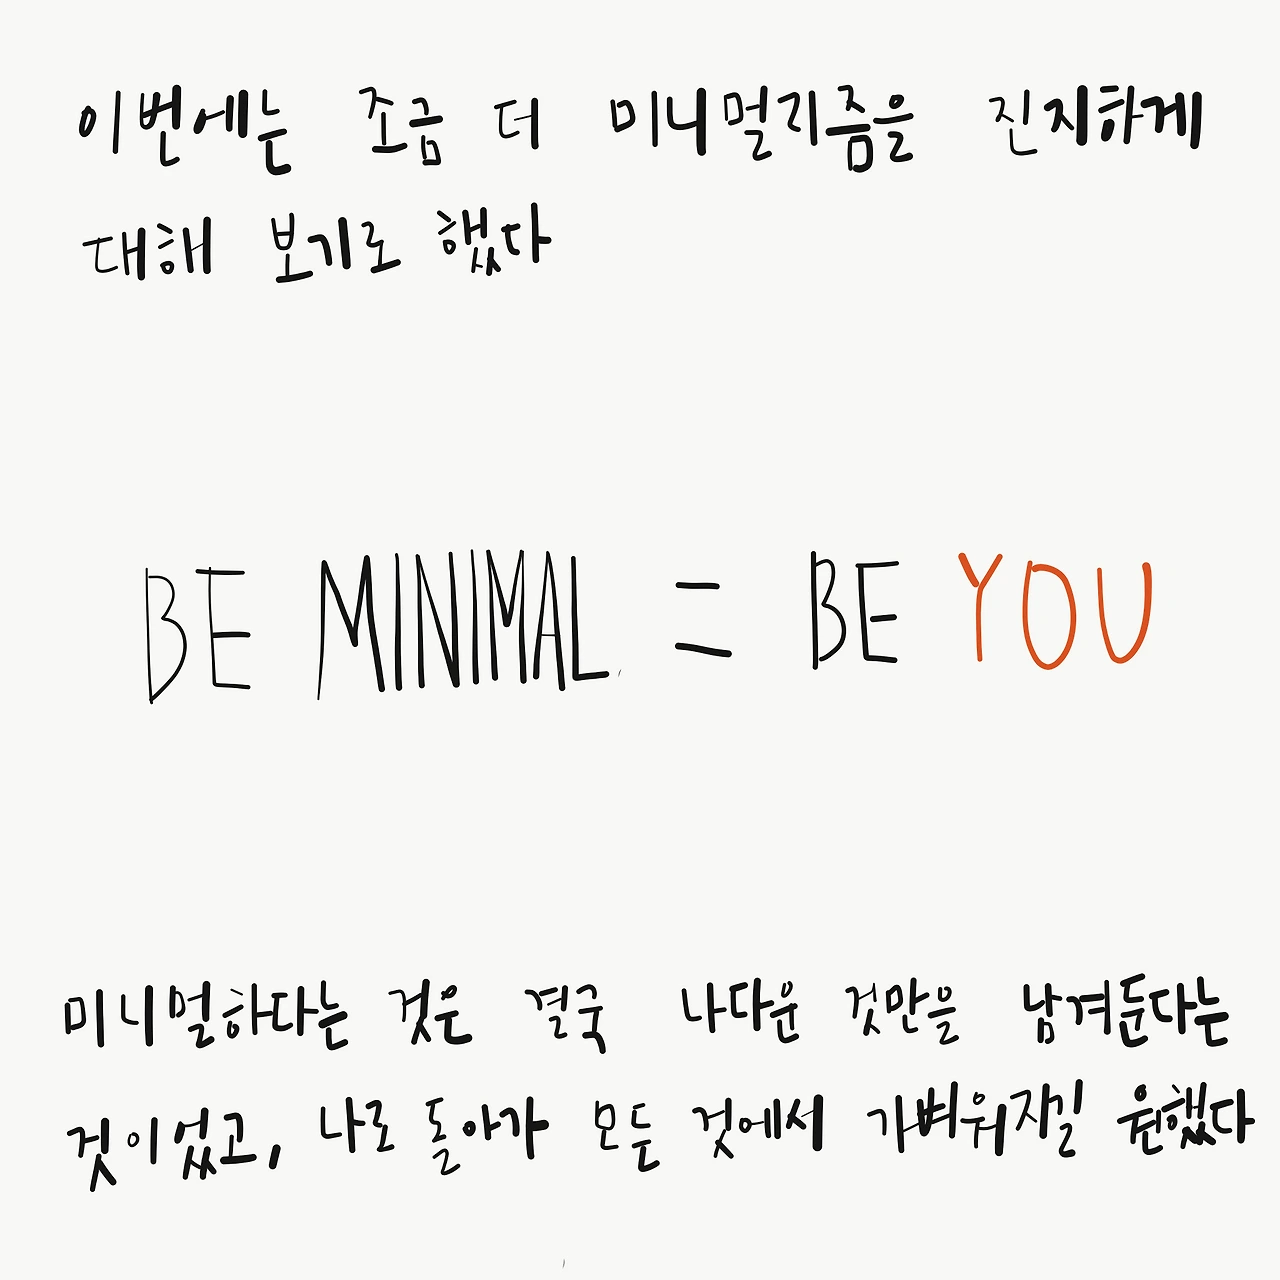 이번에는 조금 더 미니멀리즘을 진지하게
대해 보기로 했다
BE MINIMAL = BE YOU
미니멀하다는 것은 결국 나다운 것만을 남겨둔다는
것이었고, 나로 돌아가 모든 것에서 가벼워지길 원했다